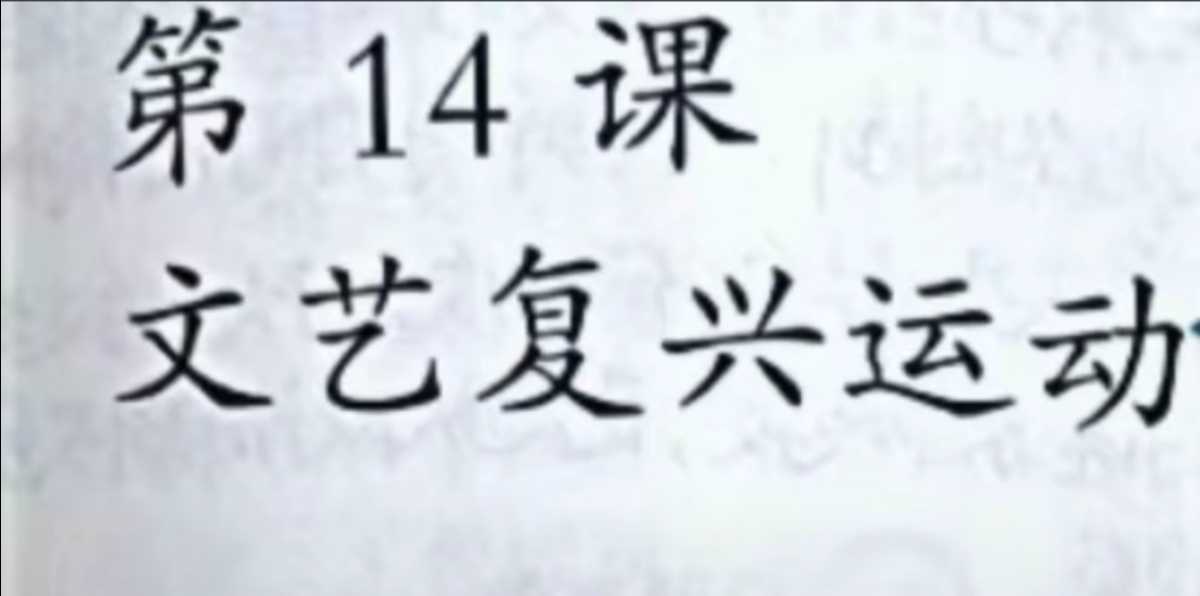 第 14 课
文艺复兴运动